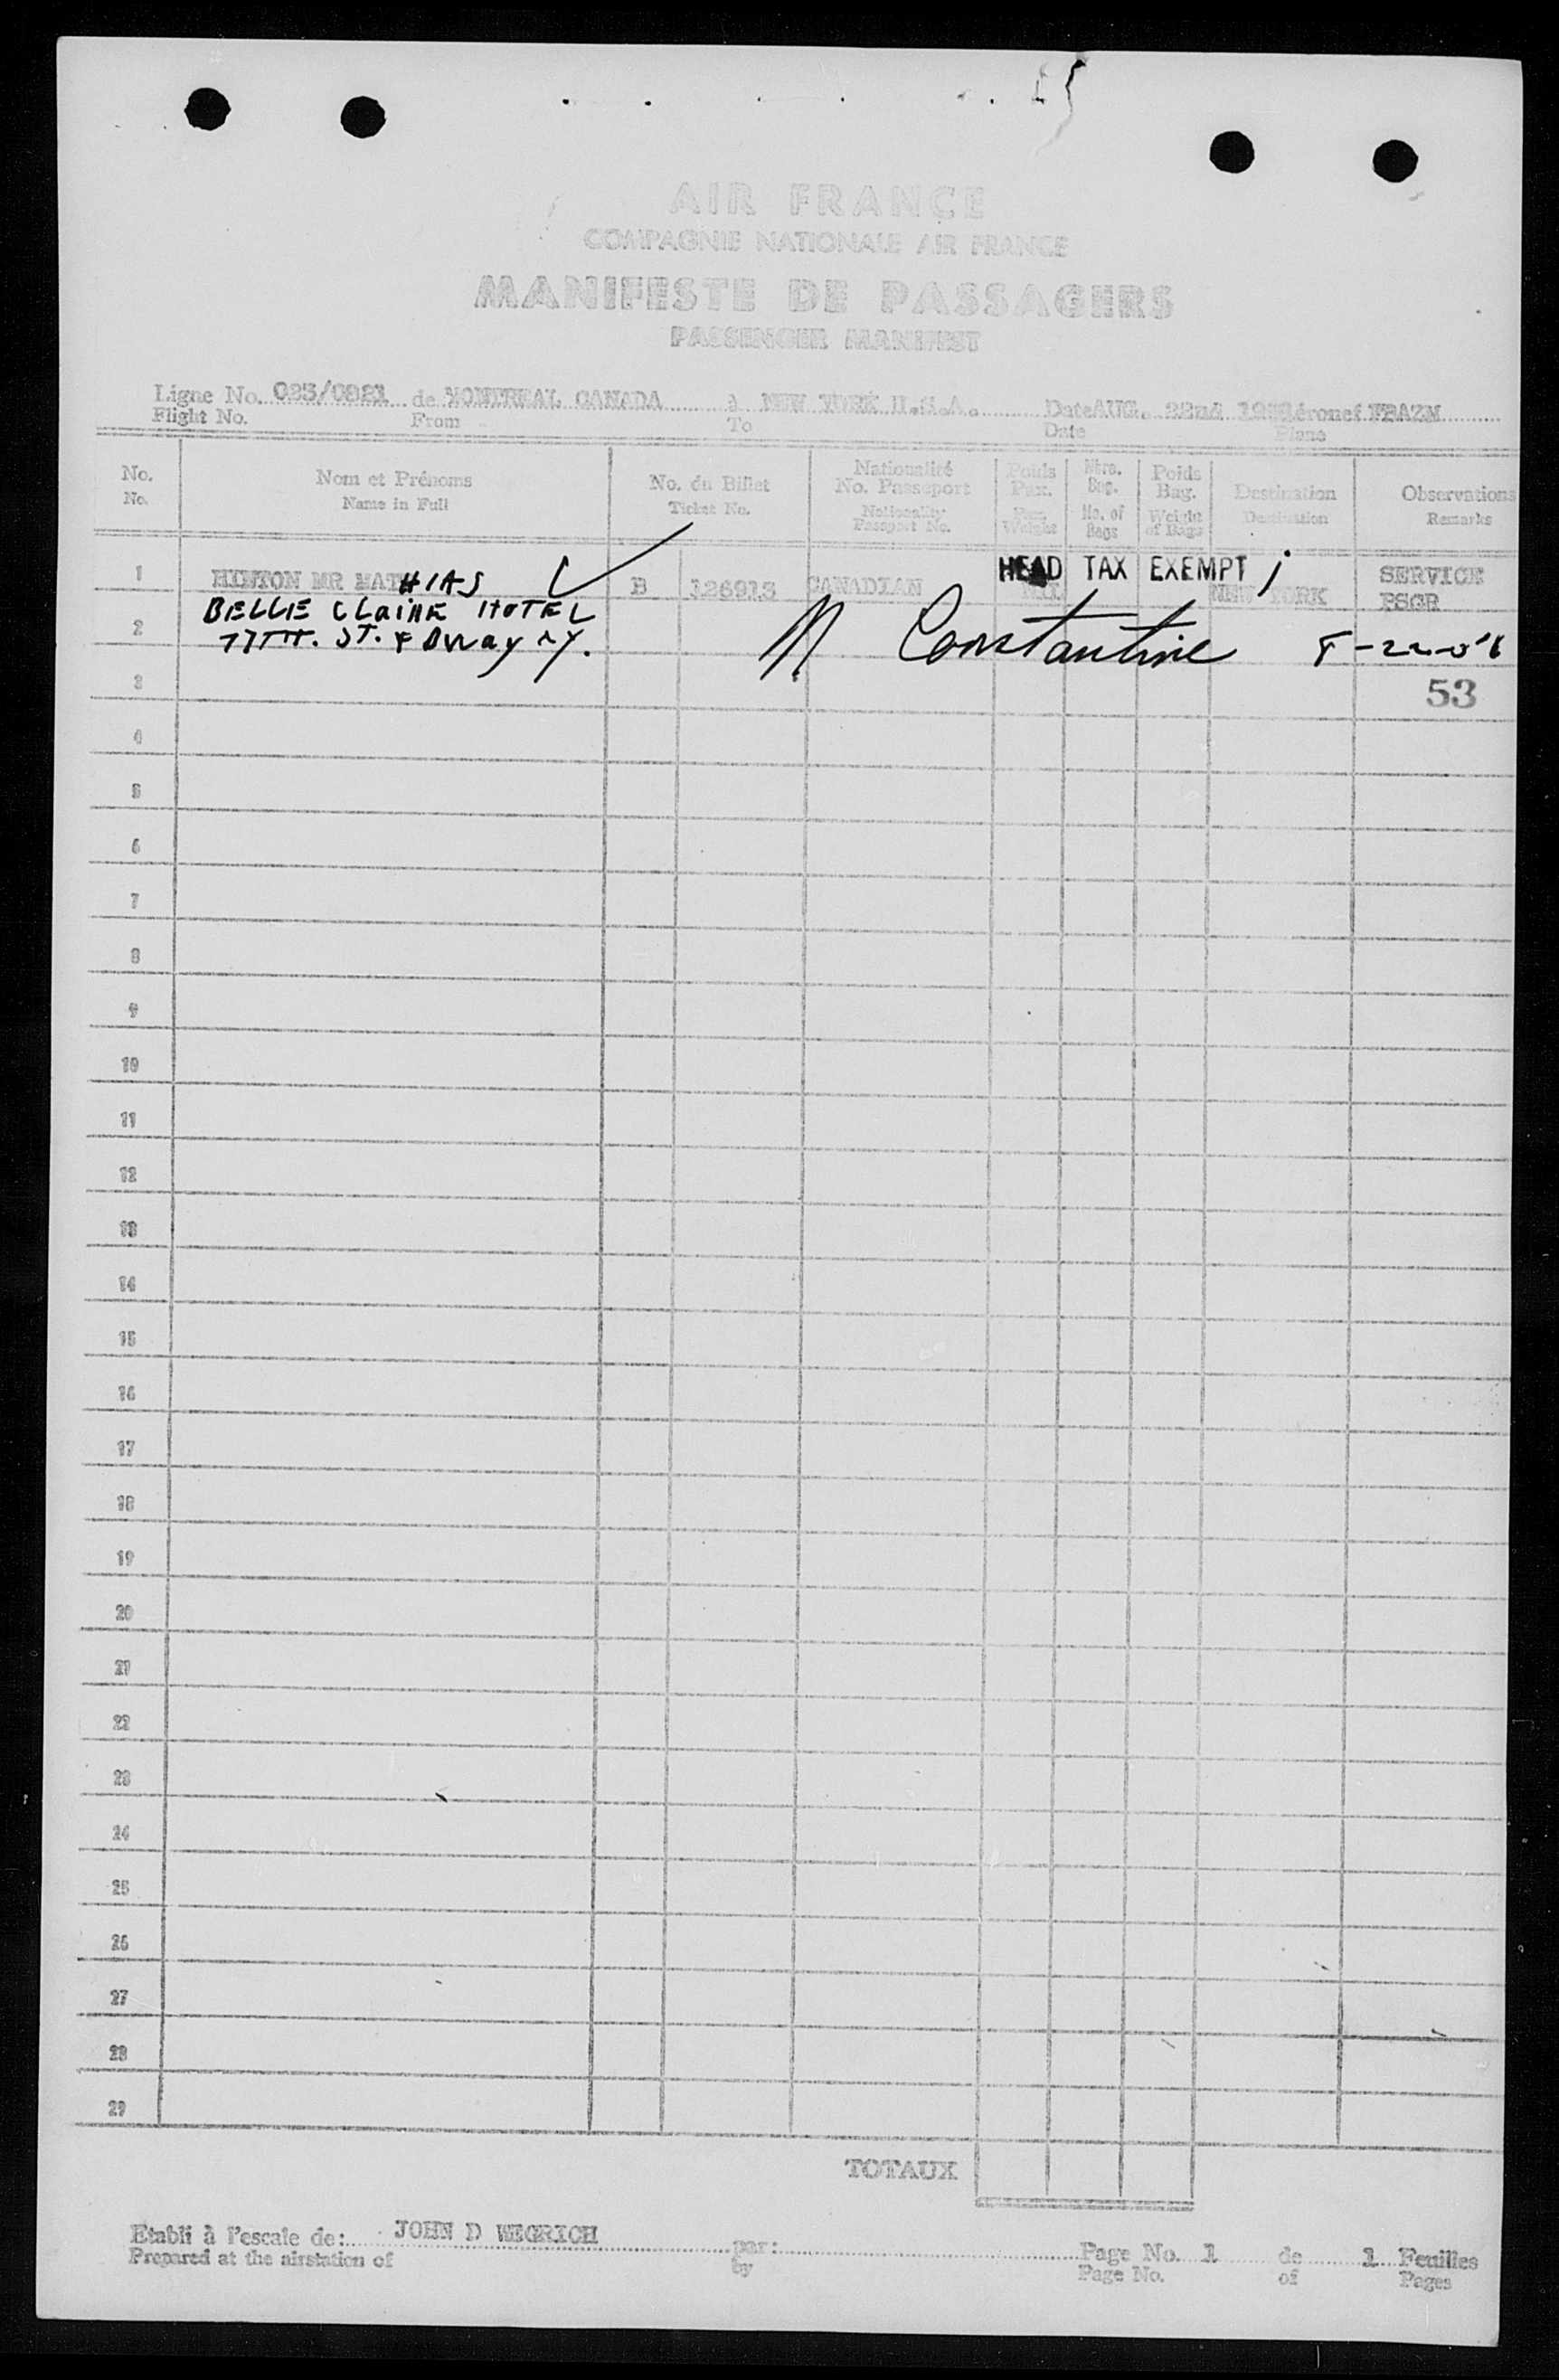 AIR FRANCE
COMPAGNIE NATIONALE AIR FRANCE
MANIFESTE DE PASSAGERS
PASSENGER MANIFEST
Ligne No. 025/0821 de MONTREAL CANADA à NEW YORK U.S.A. Date AUG. 22nd Aéronef FBAZM
Flight No. From To Date Plane
No. Nom et Prénoms No. du Billet Nationalité No. Passeport Poids Pax. Nbre. Bag. Poids Bag. Destination Observations
No. Name in Full Ticket No. Nationality Passport No. Pax. Weight No. of Bags Weight of Bags Destination Remarks
HEAD TAX EXEMPT
1 HINTON MR MATHIAS B 126913 CANADIAN NEW YORK SERVICE PSGR
BELLE CLAIRE HOTEL
2 77TH. ST. & Bway NY. N Constantine 8-22-51
3 53
4
5
6
7
8
9
10
11
12
13
14
15
16
17
18
19
20
21
22
23
24
25
26
27
28
29
TOTAUX
Etabli à l'escale de: JOHN D WEGRICH par: Page No. 1 de 1 Feuilles
Prepared at the airstation of by Page No. of Pages